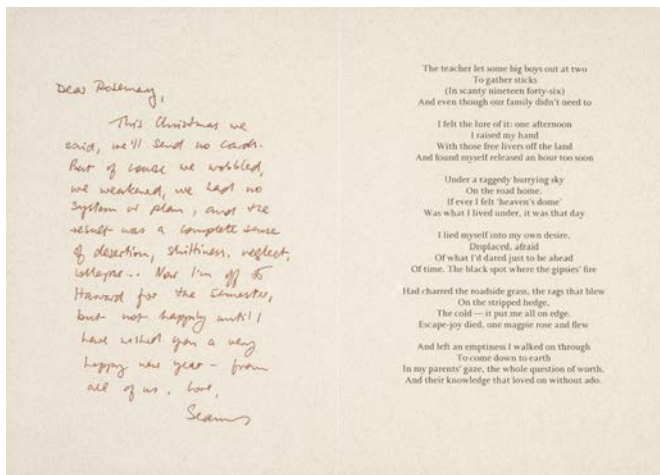 Dear Rosemary,
This Christmas we
said, we'll send no cards.
But of course we wobbled,
we weakened, we had no
system or plan, and the
result was a complete sense
of desertion, shittiness, neglect,
collapse... Now I'm off to
Harvard for the semester,
but not happily until I
have wished you a very
happy new year - from
all of us. Love,
Seamus
The teacher let some big boys out at two
To gather sticks
(In scanty nineteen forty-six)
And even though our family didn't need to
I felt the lure of it: one afternoon
I raised my hand
With those free livers off the land
And found myself released an hour too soon
Under a raggedy hurrying sky
On the road home.
If ever I felt 'heaven's dome'
Was what I lived under, it was that day
I lied myself into my own desire,
Displaced, afraid
Of what I'd dared just to be ahead
Of time. The black spot where the gipsies' fire
Had charred the roadside grass, the rags that blew
On the stripped hedge,
The cold — it put me all on edge.
Escape-joy died, one magpie rose and flew
And left an emptiness I walked on through
To come down to earth
In my parents' gaze, the whole question of worth,
And their knowledge that loved on without ado.